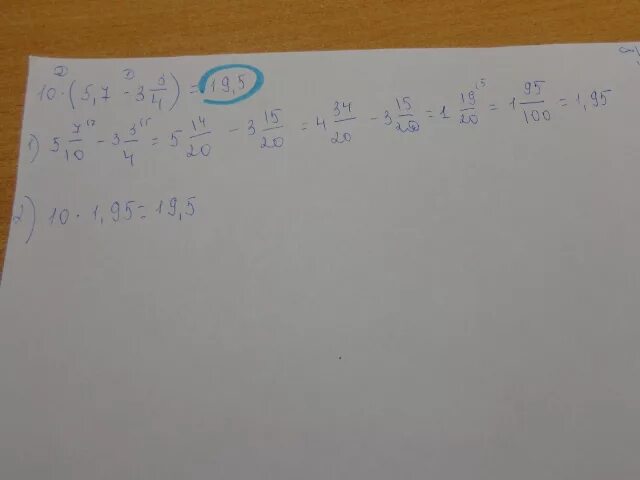 10 · (5,7 - 3 3/4) = 19,5
1) 5 7/10 - 3 3/4 = 5 14/20 - 3 15/20 = 4 34/20 - 3 15/20 = 1 19/20 = 1 95/100 = 1,95
2) 10 · 1,95 = 19,5